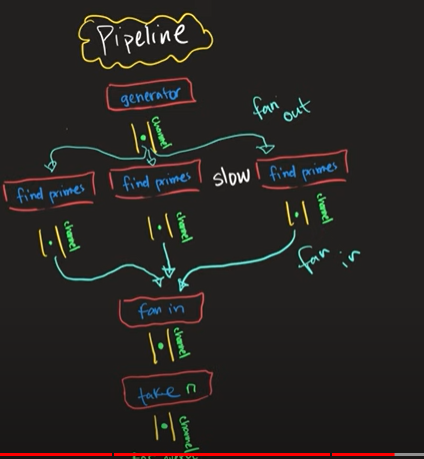 Pipeline
generator
channel
fan out
find primes
find primes
slow
find primes
channel
channel
channel
fan in
fan in
channel
take n
channel